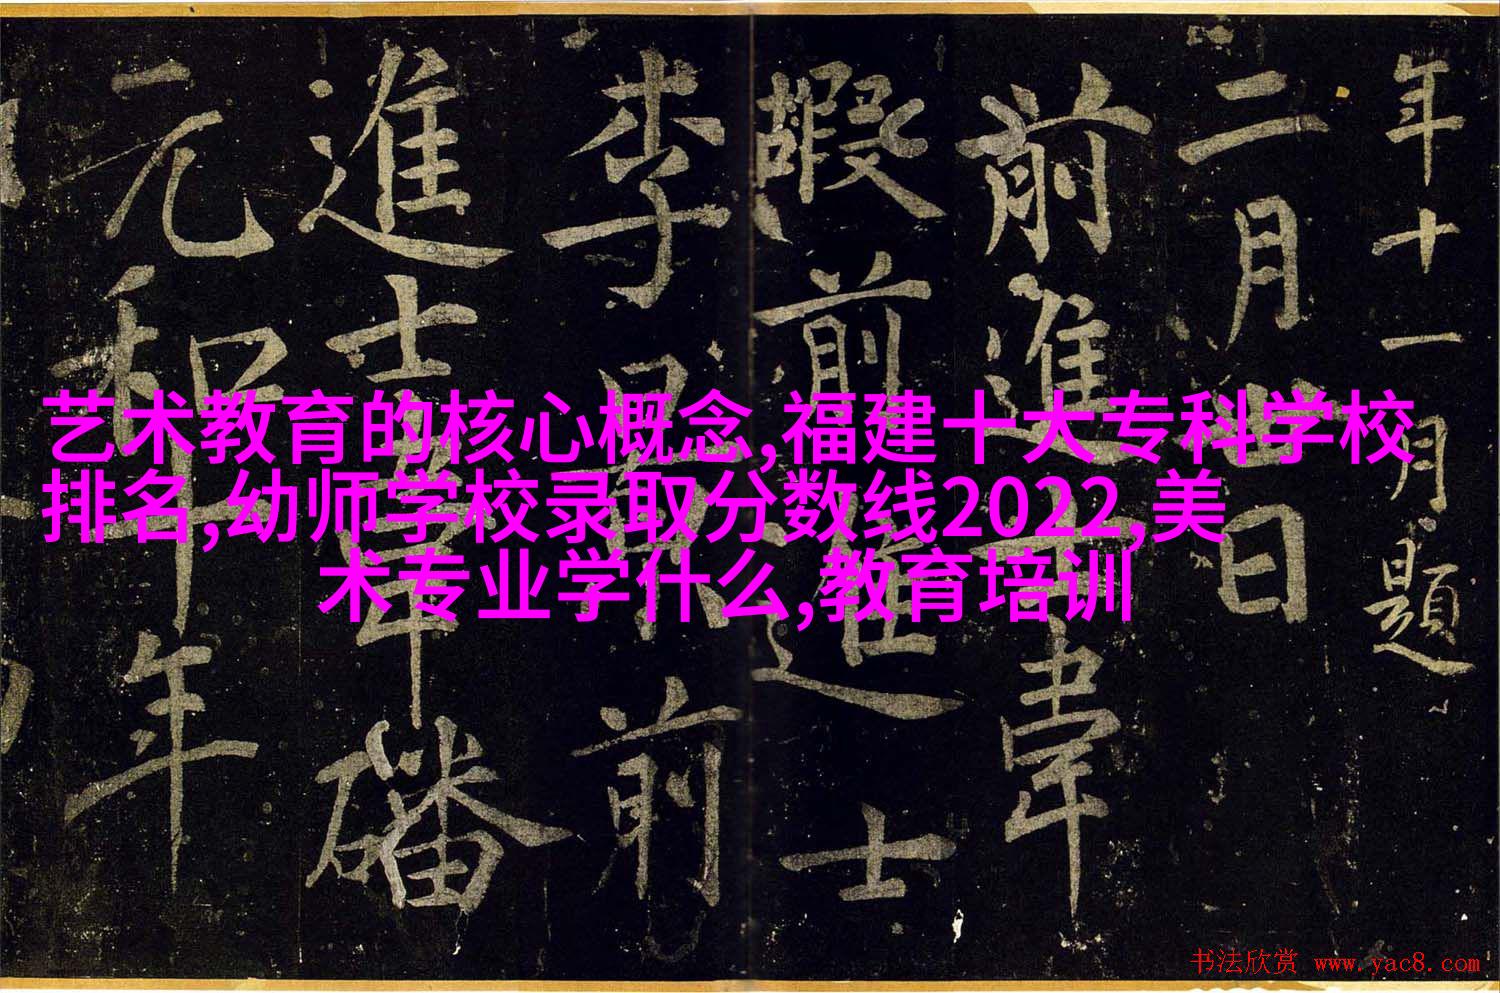 艺术教育的核心概念,福建十大专科学校
排名,幼师学校录取分数线2022,美
术专业学什么,教育培训
年十一月題
二月日
前進士韋
嘏前進士
李前
進士磻
元和年
书法欣赏 www.yac8.com